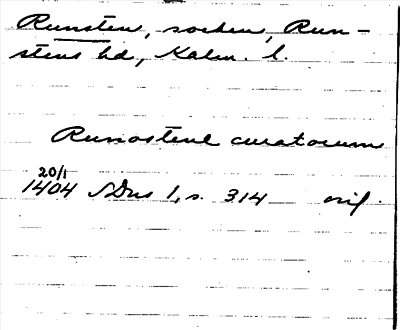 Runsten, socken, Run-
stens hd, Kalm. l.
Runostene curatorum
20/1
1404 SDns 1, s. 314 orig.